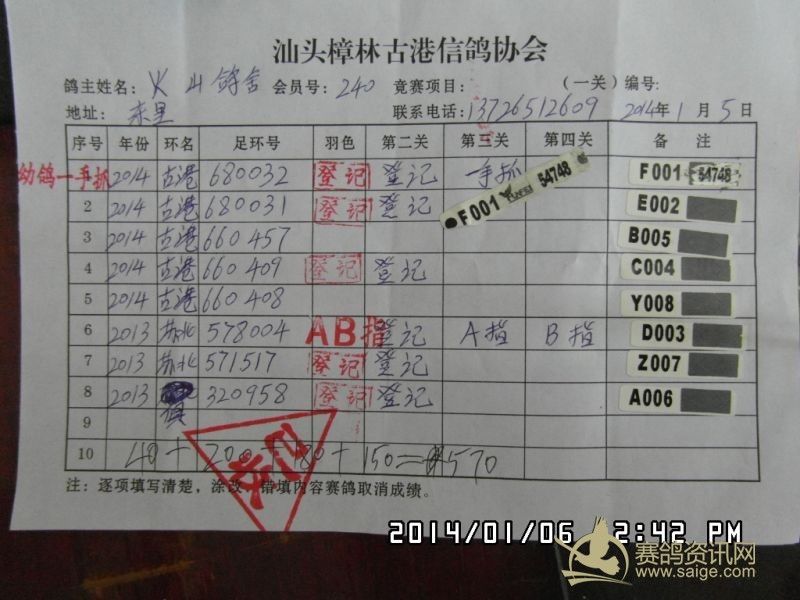 汕头樟林古港信鸽协会
鸽主姓名: 火山鸽舍 会员号: 240 竟赛项目: (一关) 编号:
地址: 东里 联系电话: 13726512609 2014年1月5日
序号 年份 环名 足环号 羽色 第二关 第三关 第四关 备注
幼鸽一手抓 2014 古港 680032 登记 登记 手抓 F001 54748
2 2014 古港 680031 登记 登记 F001 54748 E002
3 2014 古港 660457 B005
4 2014 古港 660409 登记 登记 C004
5 2014 古港 660408 Y008
6 2013 苏北 578004 AB指 登记 A指 B指 D003
7 2013 苏北 571517 登记 登记 Z007
8 2013 320958 登记 登记 A006
9
10 40+200 180+150=¥570
注: 逐项填写清楚,涂改、错填内容赛鸽取消成绩。
2014/01/06 2:42 PM
赛鸽资讯网
www.saige.com